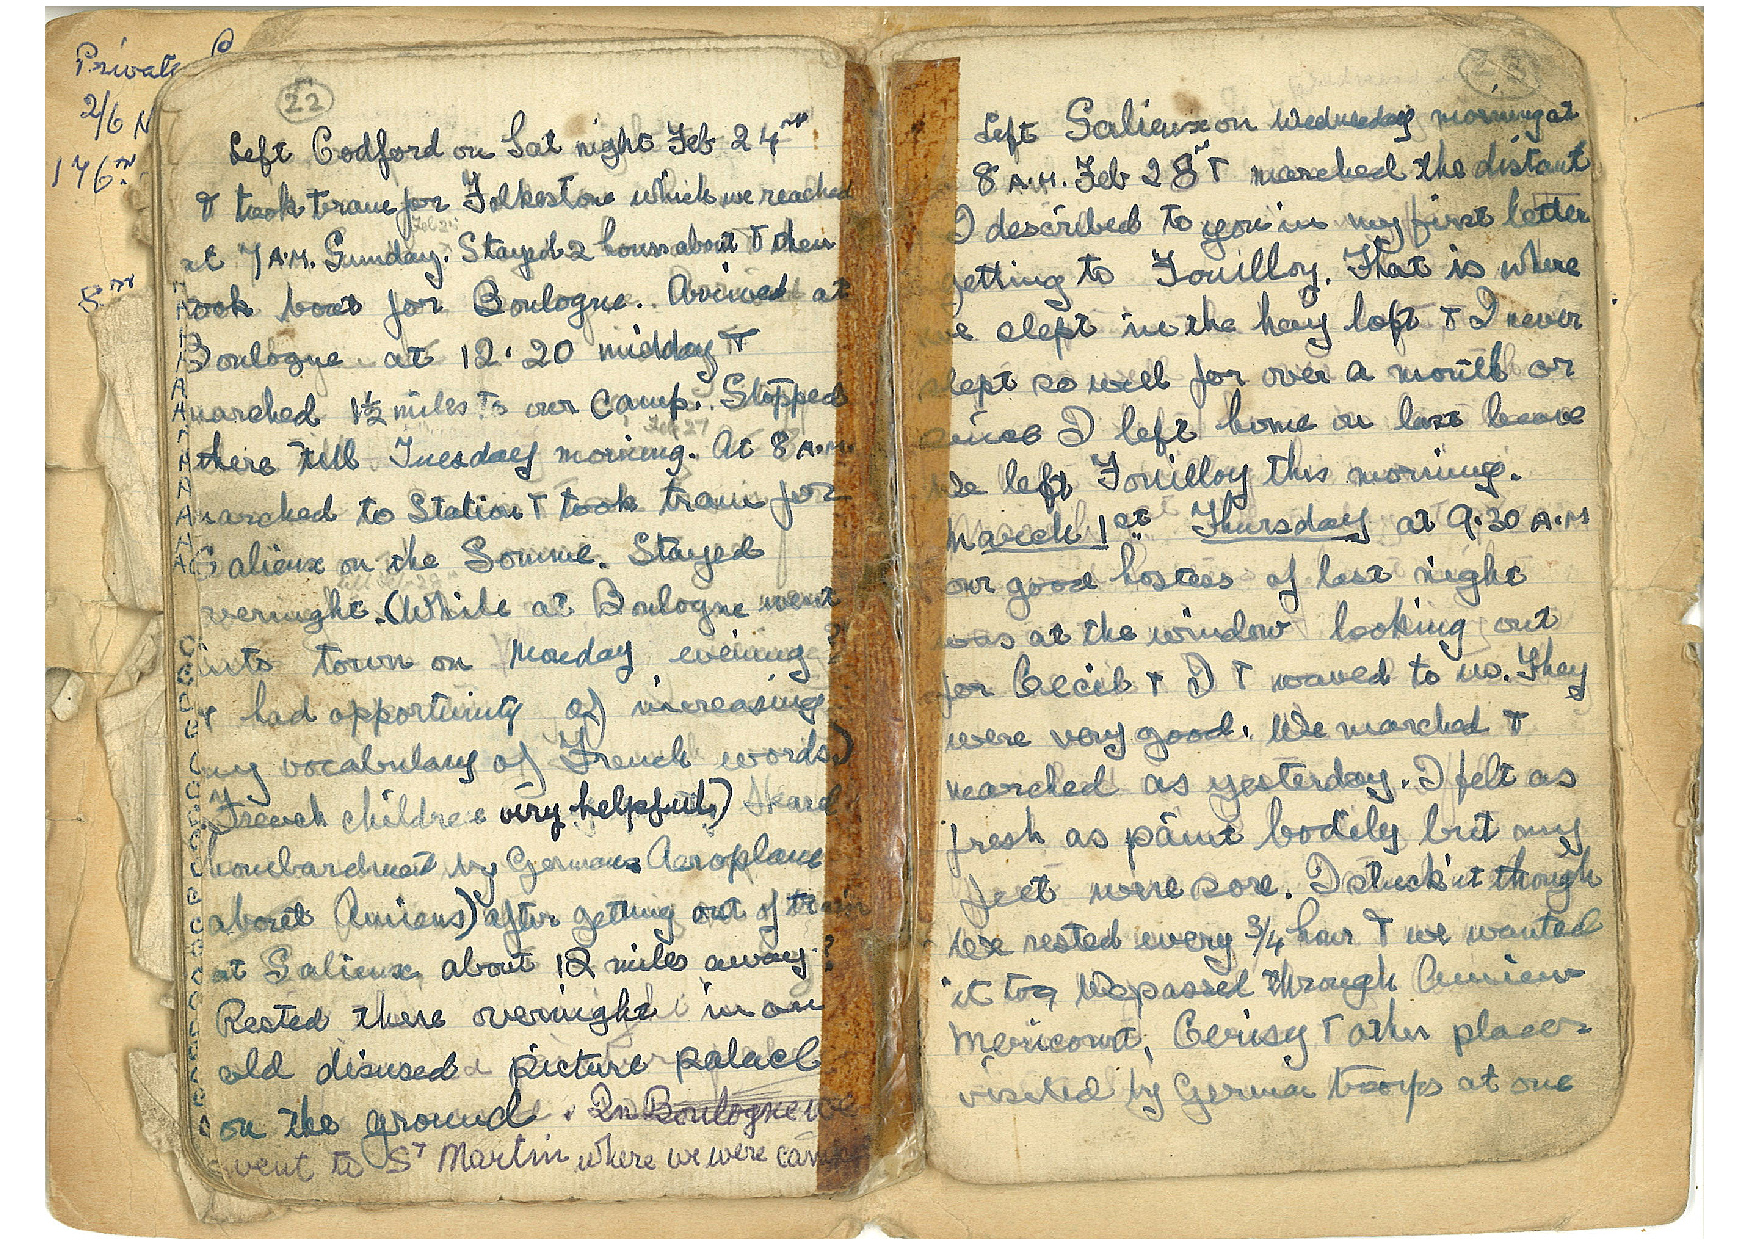 Private
2/6 N
176th
5th
22
Left Codford on Sat night Feb 24th
& took train for Folkestone which we reached
at 7 A.M. Sunday. Stayed 2 hours about & then
took boat for Boulogne. Arrived at
Boulogne at 12.20 midday &
marched 1½ miles to our camp. Stopped
Feb 27
there till Tuesday morning. At 8 A.M.
marched to Station & took train for
Salieux on the Somme. Stayed
overnight. (While at Boulogne went
into town on Monday evening
& had opportunity of increasing
my vocabulary of French words.)
French children very helpful) Heard
bombardment by German Aeroplane
about Amiens) after getting out of train
at Salieux, about 12 miles away?
Rested there overnight in an
old disused picture palace
on the ground. In Boulogne we
went to St Martin where we were camped
23
Left Salieux on Wednesday morning at
8 A.M. Feb 28th & marched the distant
I described to you in my first letter
getting to Fouilloy. That is where
we slept in the hay loft & I never
slept so well for over a month or
since I left home on last leave
We left Fouilloy this morning.
March 1st Thursday at 9.30 A.M
our good hostess of last night
was at the window looking out
for Cecil & I & waved to us. They
were very good. We marched &
marched as yesterday. I felt as
fresh as paint bodily but my
feet were sore. I stuck it though
We rested every 3/4 hour & we wanted
it too We passed through Amiens
Mericourt, Cerisy & other places
visited by German troops at one